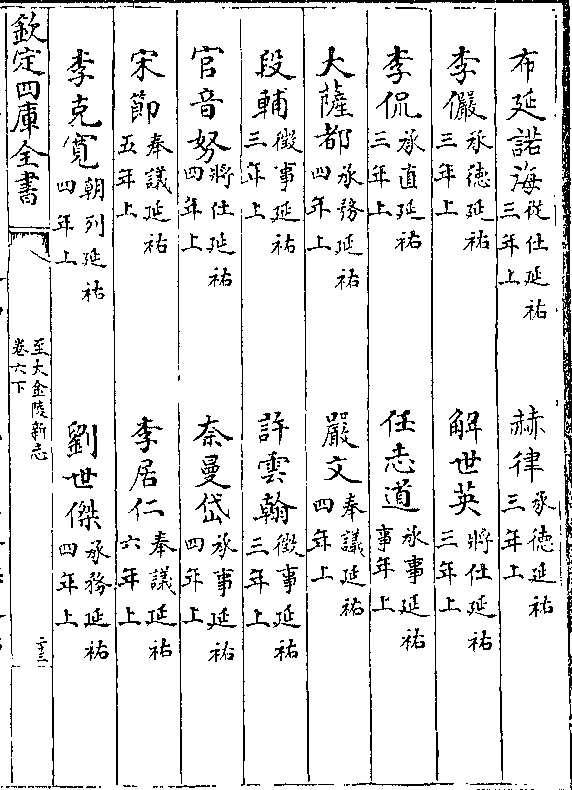 布延諾海從仕延祐三年上 赫律承德延祐三年上
李儼承德延祐三年上 解世英將仕延祐三年上
李侃承直延祐三年上 任志道承事延祐事年上
大薩都承務延祐四年上 嚴文奉議延祐四年上
段輔徵事延祐三年上 許雲翰徵事延祐三年上
官音努將仕延祐四年上 奈曼岱承事延祐四年上
宋節奉議延祐五年上 李居仁奉議延祐六年上
李克寛朝列延祐四年上 劉世傑承務延祐四年上
欽定四庫全書
至大金陵新志
卷六下
二十三